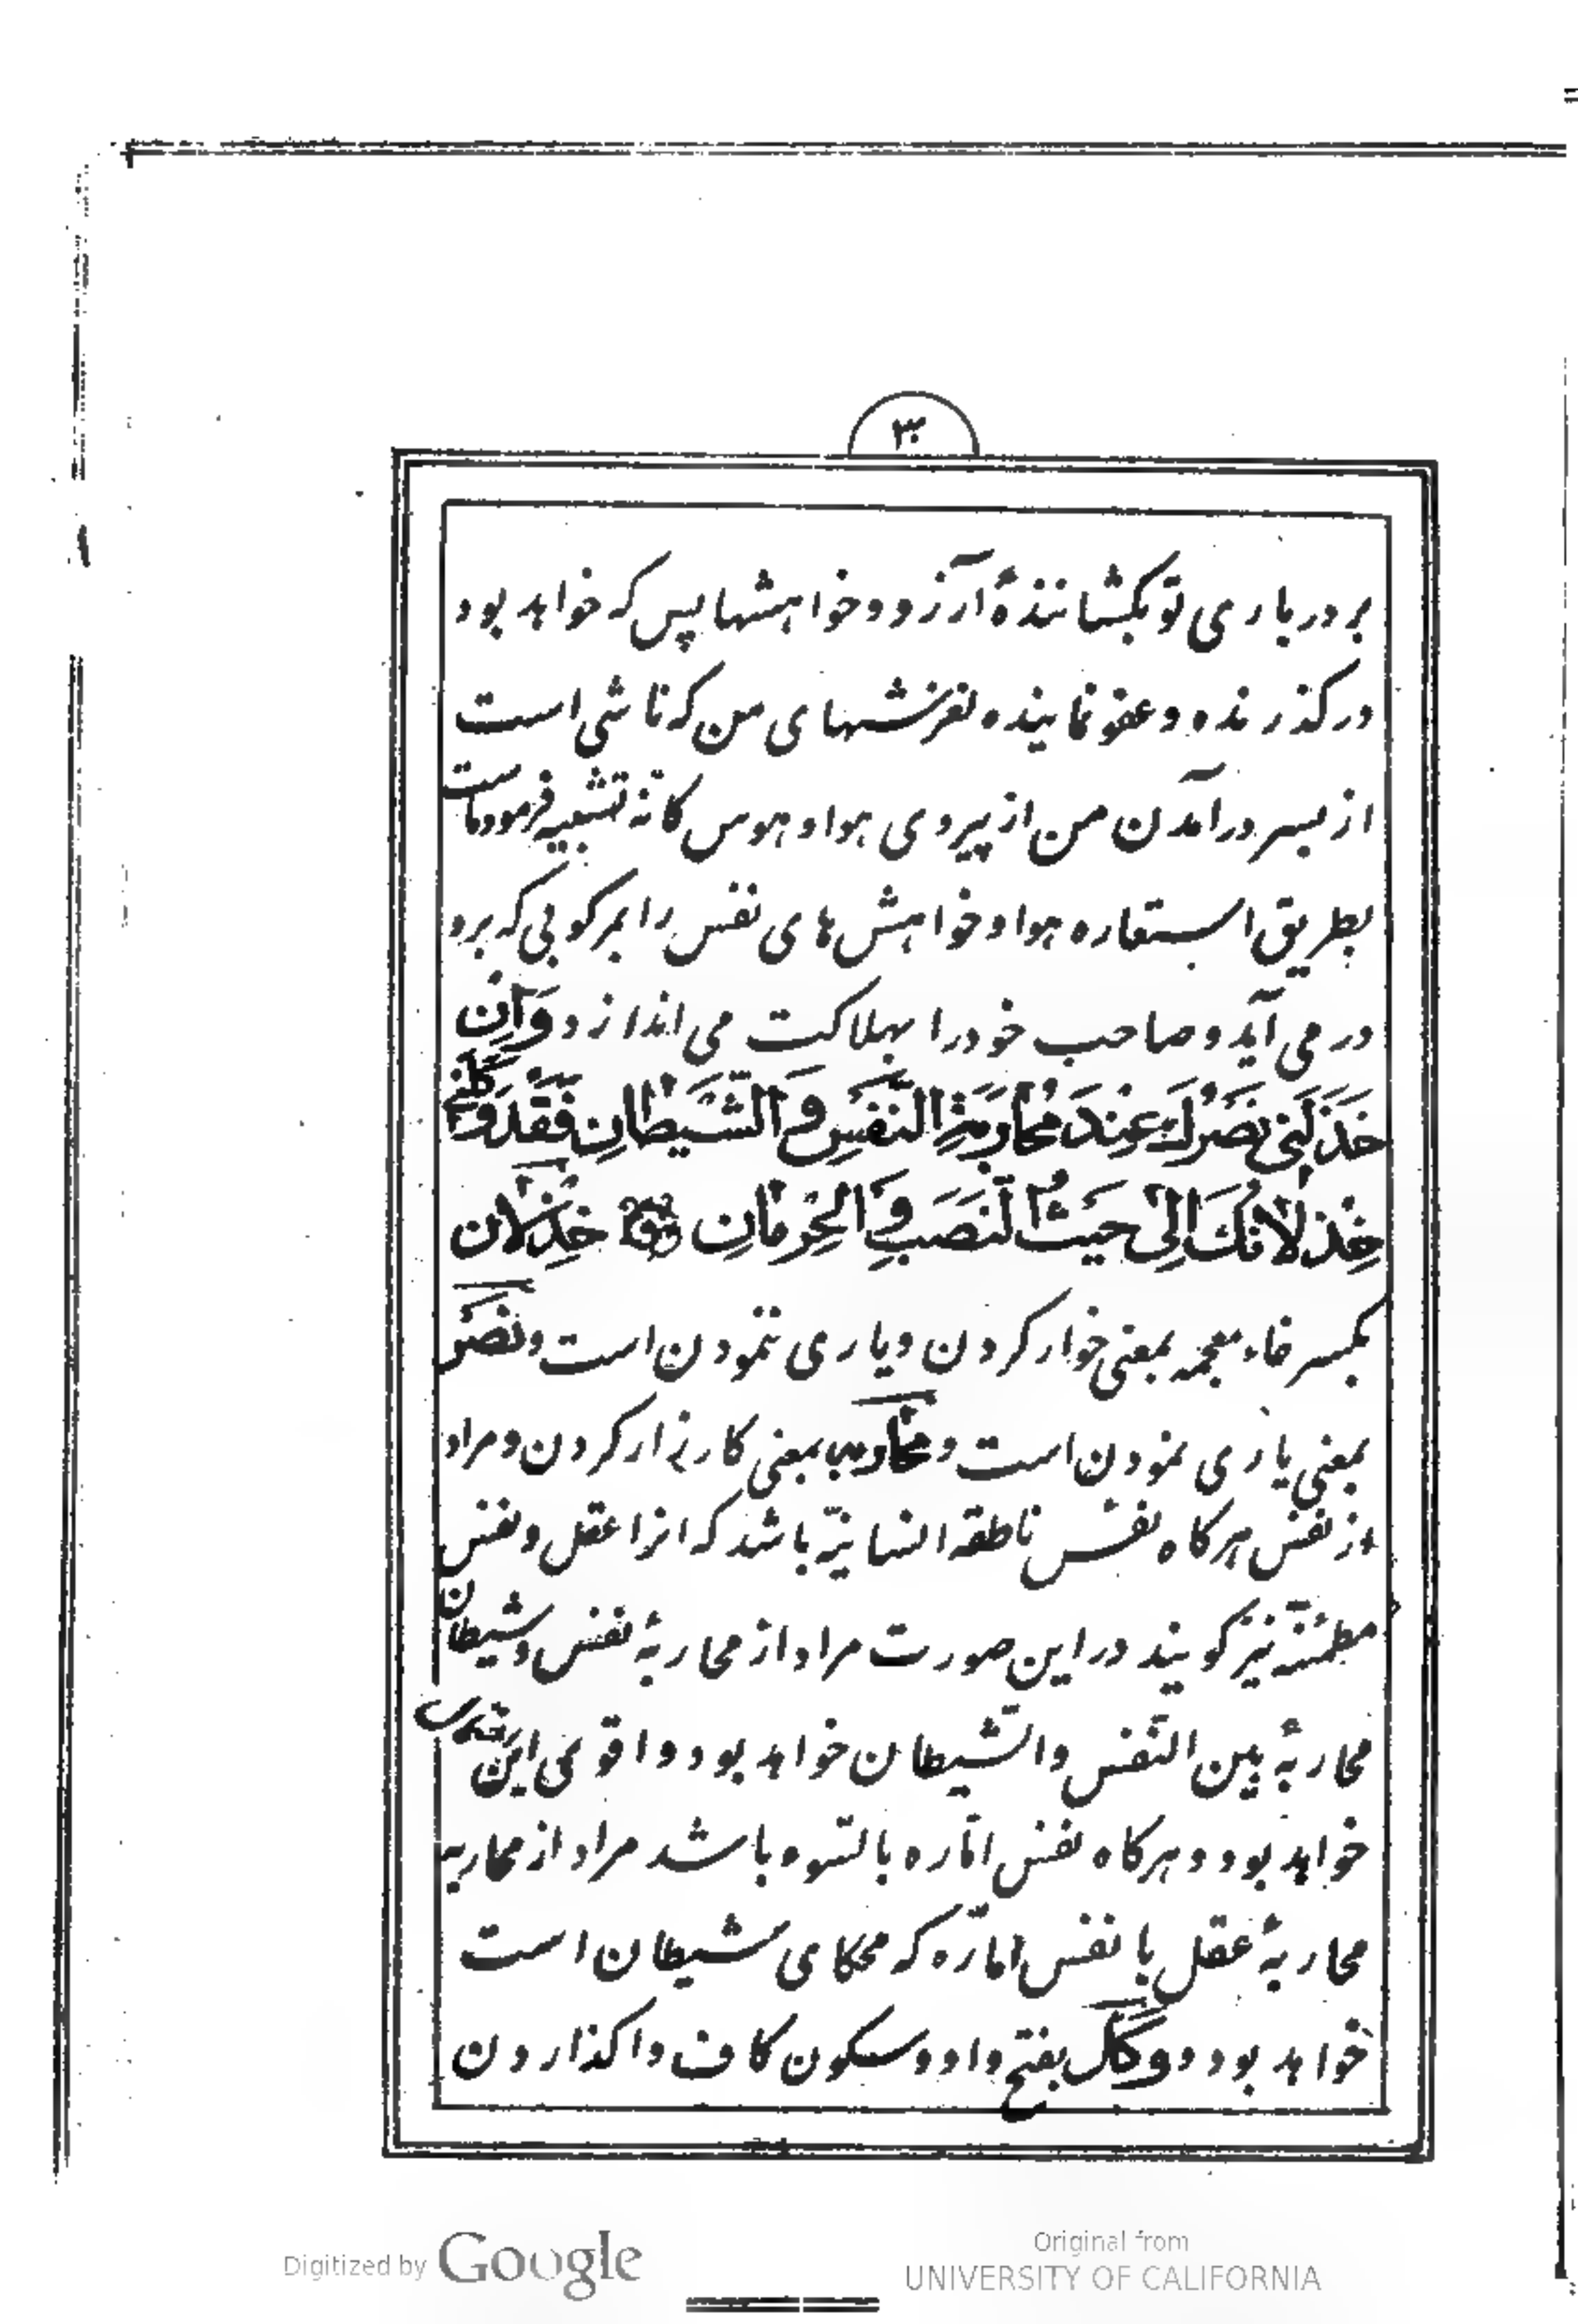 ۳۰
بردباری تو بکشانندهٔ آرزو و خواهشها پس که خواهد بود
درکذرنده و عفو نماینده لغزشهای من که ناشی است
از بسر درآمدن من از پیروی هوا و هوس کانّه تشبیه فرموده است
بطریق استعاره هوا و خواهش های نفس را بمرکوبی که برو
در می آید و صاحب خود را بهلاکت می اندازد وَاِنْ
خَذَلَنی نَصْرُكَ عِنْدَ مُحارَبَةِ النَّفْسِ وَ الشَّیْطانِ فَقَدْ وَكَلَنی
خِذْلانُكَ اِلی حَیْثُ النَّصَبِ وَ الْحِرْمانِ خذلان
بکسر خاء معجمه بمعنی خوار کردن و یاری ننمودن است و نصر
بمعنی یاری نمودن است و محاربه بمعنی کارزار کردن و مراد
از نفس هرکاه نفس ناطقه انسانیّه باشد که انرا عقل و نفس
مطمئنّه نیز کویند در این صورت مراد از محاربهٔ نفس و شیطان
محاربهٔ بین النّفس و الشّیطان خواهد بود و اقوی این
خواهد بود و هرکاه نفس امّاره بالسّوء باشد مراد از محاربه
محاربهٔ عقل با نفس امّاره که محکای شیطان است
خواهد بود و وکل بفتح واو و سکون کاف واکذاردن
Digitized by Google
Original from
UNIVERSITY OF CALIFORNIA